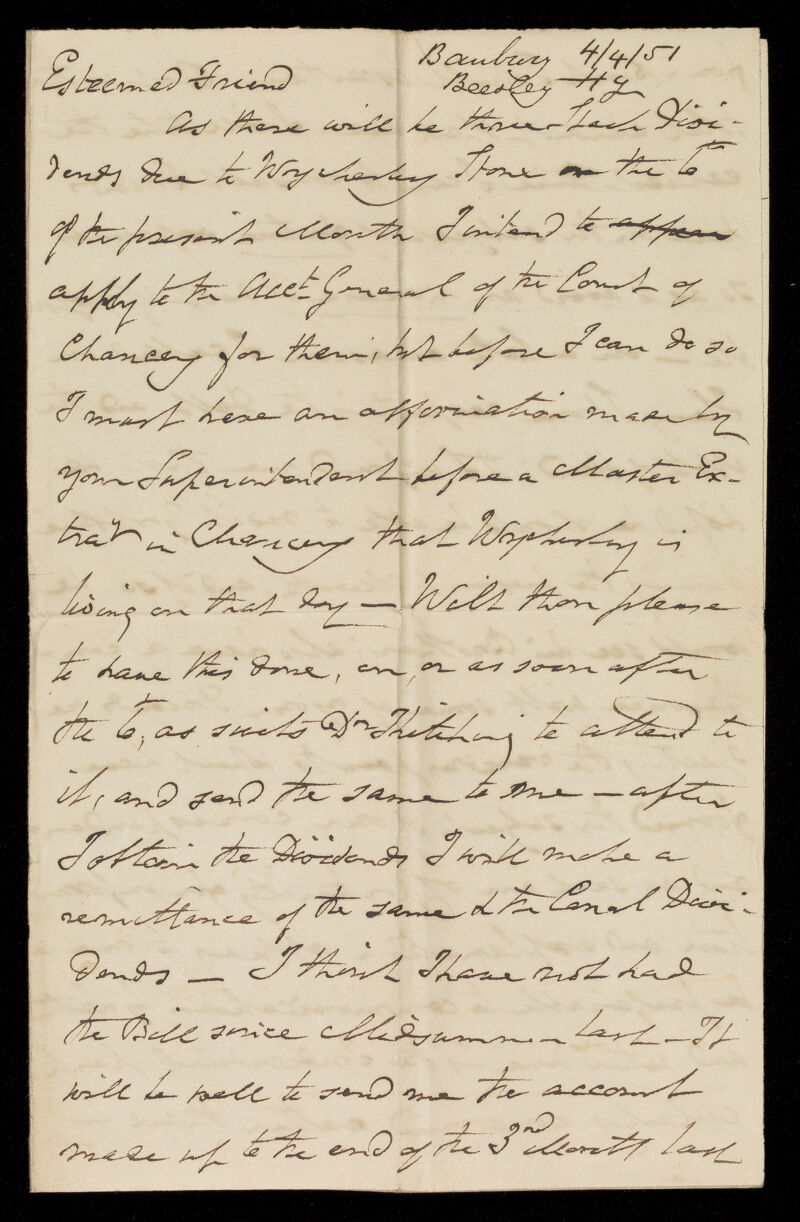 Banbury 4/4/51
Beesley Hy
Esteemed Friend
As there will be three Stock Divi-
dends due to Wycherley Stone on the 6th
of the present Month I intend to appear
apply to the Acct. General of the Court of
Chancery for them, but before I can do so
I must have an affirmation made by
your Superintendent before a Master Ex-
tray in Chancery that Wycherley is
living on that day — Wilt thou please
to have this done, on, or as soon after
the 6th, as suits Dr Kitching to attend to
it, and send the same to me — after
I obtain the Dividends I will make a
remittance of the same & the Canal Divi-
dends — I think I have not had
the Bill since Midsummer last — It
will be well to send me the account
made up to the end of the 3nd Month last